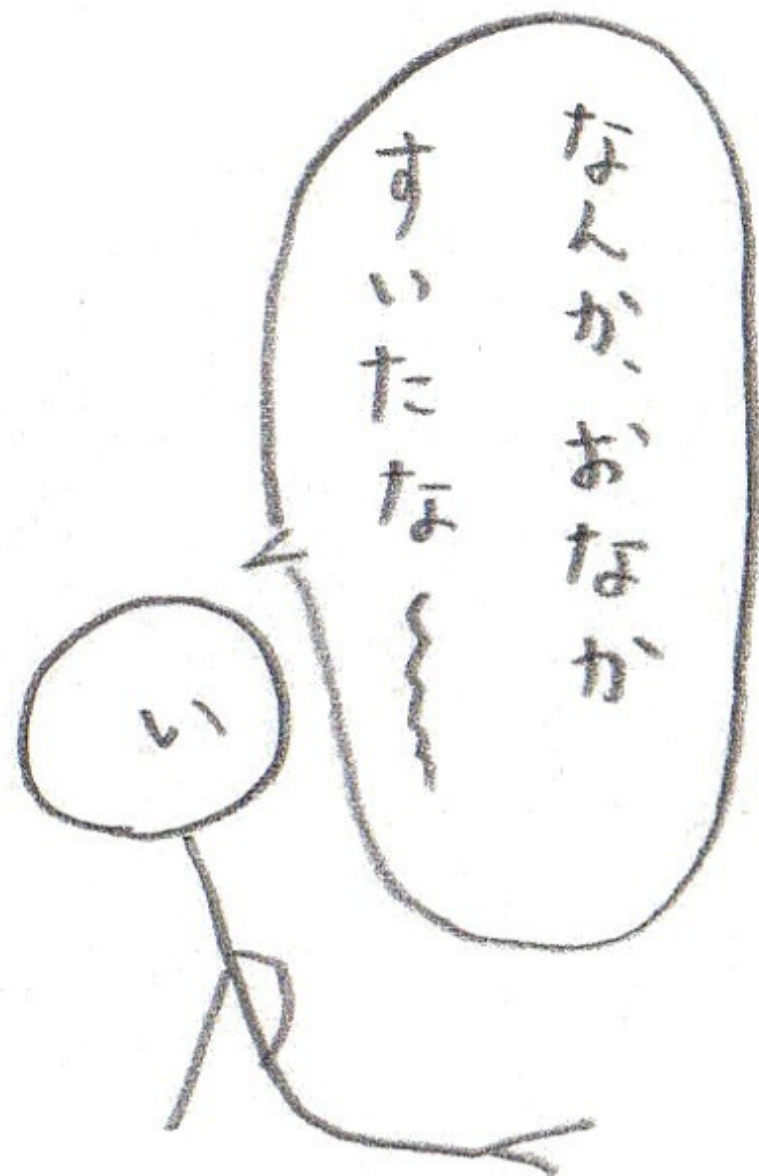 なんか、おなか
すいたな〜
い